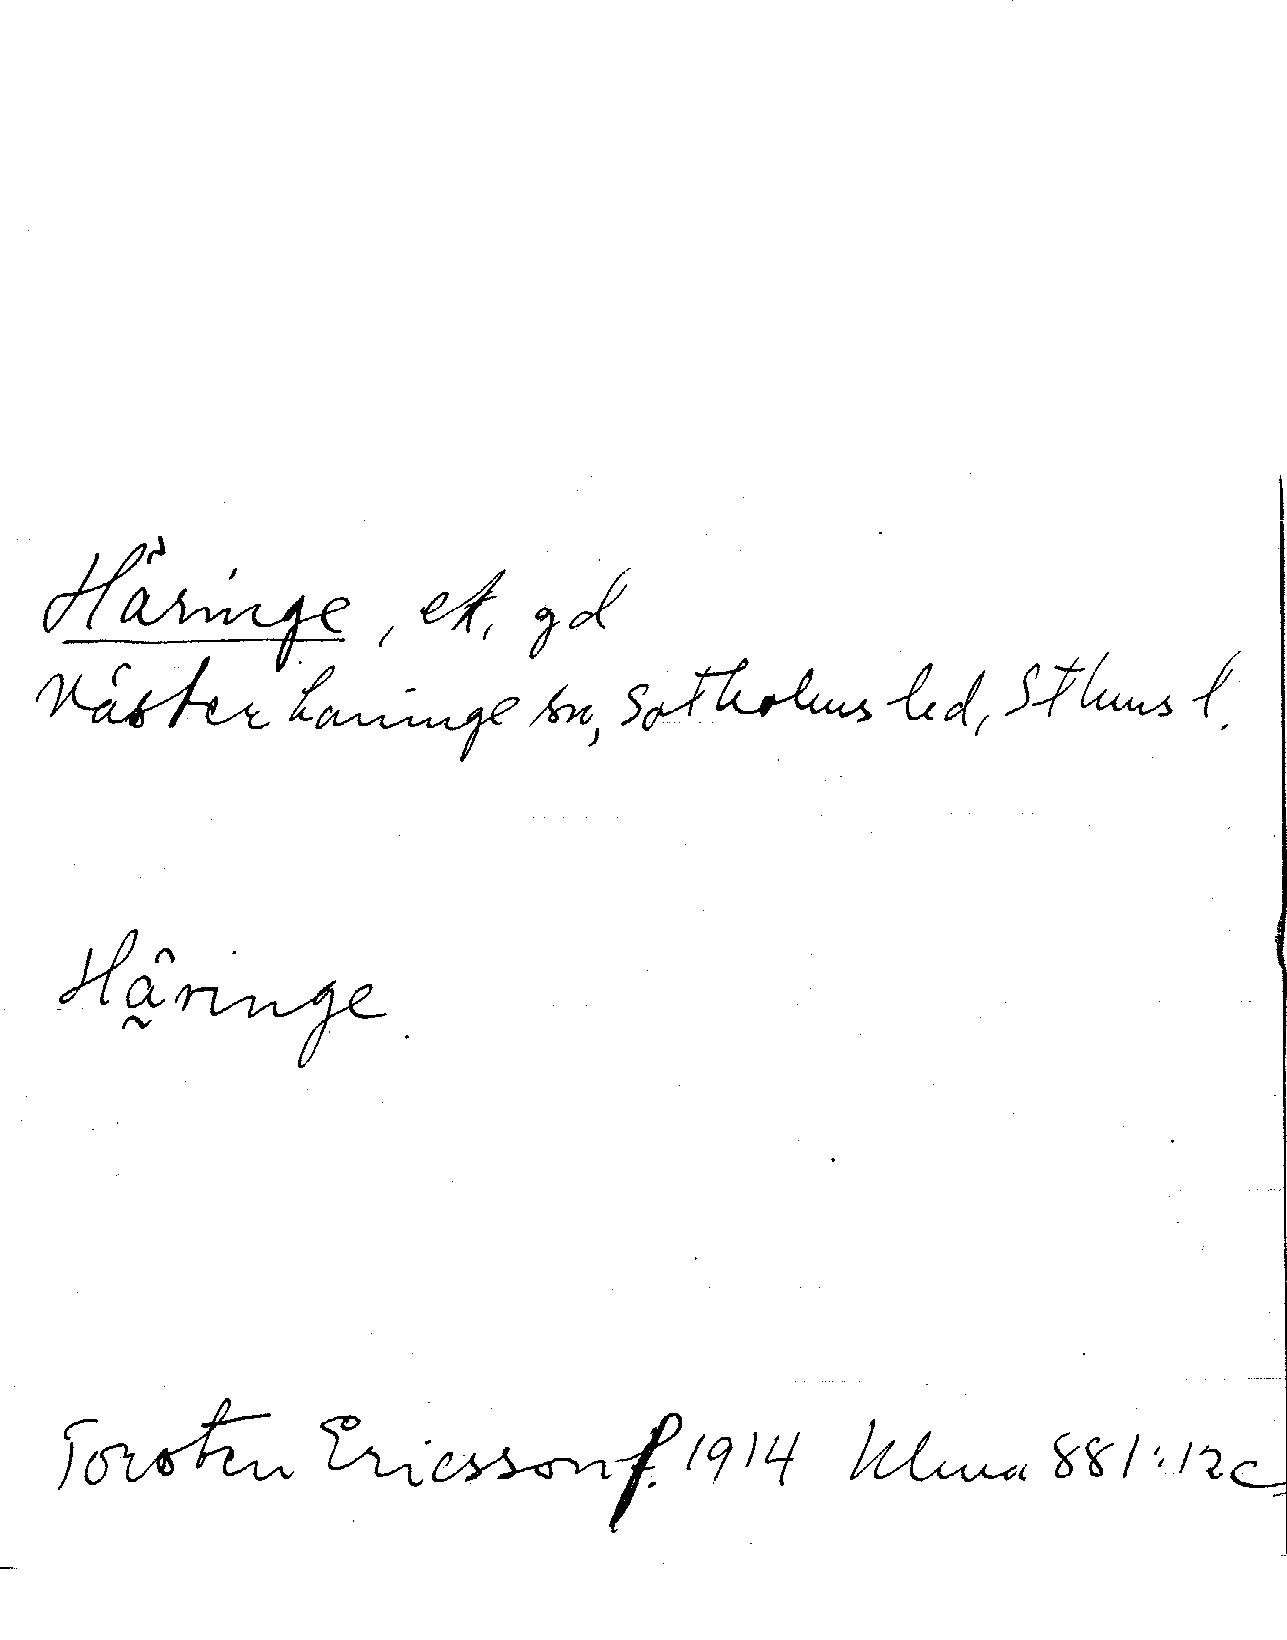 Häringe, ek, gd
Västerhaninge sn, Sotholms hd, Sthms l.
Hâ̰ringe
Torsten Ericsson f. 1914 Ulma 881:12c